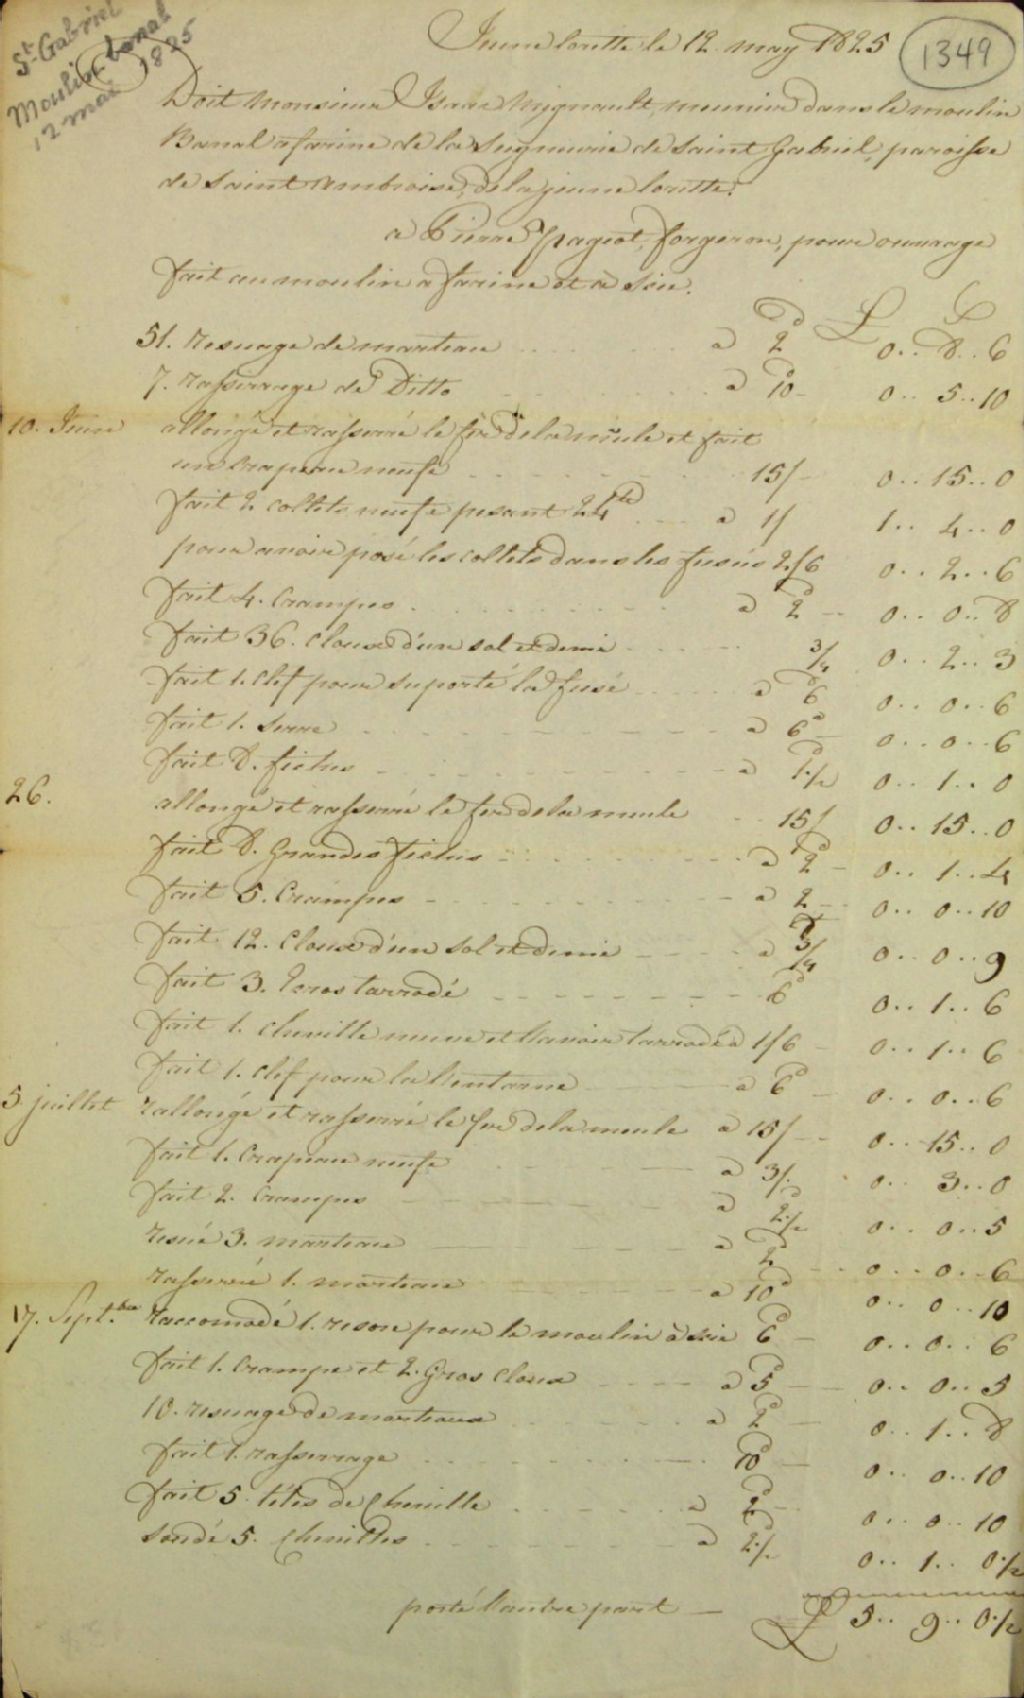 St Gabriel
Moulin banal
12 mai 1825
1349
Jeune lorette le 12 may 1825
Doit Monsieur Isaac Mignault, meunier dans le moulin
Banal a farine de la Seigneurie de Saint Gabriel, paroisse
de Saint Ambroise, de la jeune lorette.
a Pierre Pageot, forgeron, pour ouvrage
fait au moulin a farine et a Scie.
d £ S
51. resuage de marteau a 2 0.. 8.. 6
7. rasserrage de Ditto a 10 0.. 5.. 10
10. Juin allongé et rasserré le fer de la meule et fait
un Crapeau neufe 15/- 0.. 15.. 0
fait 2. collets neufe pesant 24 lb a 1/ 1.. 4.. 0
pour avoir posé les collets dans les fusées 2/6 0.. 2.. 6
fait 4. Crampes a 2d 0.. 0.. 8
fait 36. Cloux d'un sol et demie 3/4 0.. 2.. 3
fait 1. Clef pour suporté la fusé a 6d 0.. 0.. 6
fait 1. Serre a 6d 0.. 0.. 6
fait 8. fiches a 1.½ 0.. 1.. 0
26. allongé et rasserré le fer de la meule 15/ 0.. 15.. 0
fait 8. Grandes fiches a 2d 0.. 1.. 4
fait 5. Crampes a 2 0.. 0.. 10
fait 12. Cloux d'un Sol et demie a 3/4 0.. 0.. 9
fait 3. Ecros tarrodé 6d 0.. 1.. 6
fait 1. Cheville neuve et l'avoir tarrodé a 1/6 0.. 1.. 6
fait 1. Clef pour la a 6d 0.. 0.. 6
5 juillet rallongé et rasserré le fer de la meule a 15/- 0.. 15.. 0
fait 1. Crapeau neufe a 3/. 0.. 3.. 0
fait 2. Crampes a 2.½ 0.. 0.. 5
resué 3. marteau a 2d 0.. 0.. 6
rasserré 1. marteau a 10d 0.. 0.. 10
17. Sept.bre raccomodé 1. pour le moulin à scie 6d 0.. 0.. 6
fait 1. Crampe et 2. Gros Cloux a 5d 0.. 0.. 5
10. resuage de marteaux a 2d 0.. 1.. 8
fait 1. rasserrage 10d 0.. 0.. 10
fait 5. têtes de Cheville a 2d 0.. 0.. 10
soudé 5. Chevilles a 2.½ 0.. 1.. 0.½
porté l'autre part £ 5.. 9.. 0.½